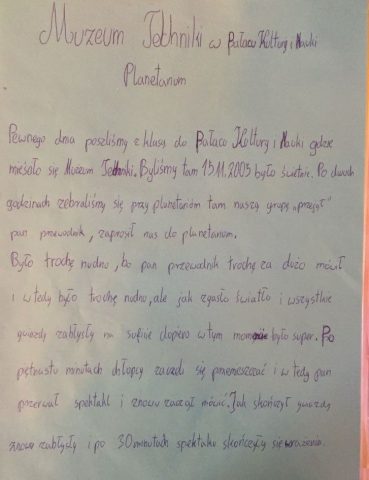 Muzeum Techniki w Pałacu Kultury i Nauki
Planetarium
Pewnego dnia poszliśmy z klasą do Pałaca Kultury i Nauki gdzie
mieściło się Muzeum Techniki. Byliśmy tam 15.11.2005 było świetnie. Po dwuch
godzinach zebraliśmy się przy planetariom tam naszą grupę "przejął"
pan przewodnik, zaprosił nas do planetarium.
Było trochę nudno, bo pan przewodnik trochę za dużo mówił
i wtedy było trochę nudno, ale jak zgasło światło i wszystkie
gwiazdy zabłysły na suficie dopiero w tym momencie było super. Po
piętnastu minutach chłopcy zaczeli się przemieszczać i w tedy pan
przerwał spektakl i znowu zaczął mówić. Jak skończył gwiazdy
znowu zabłysły i po 30 minutach spektaklu skończyły się wrażenia.